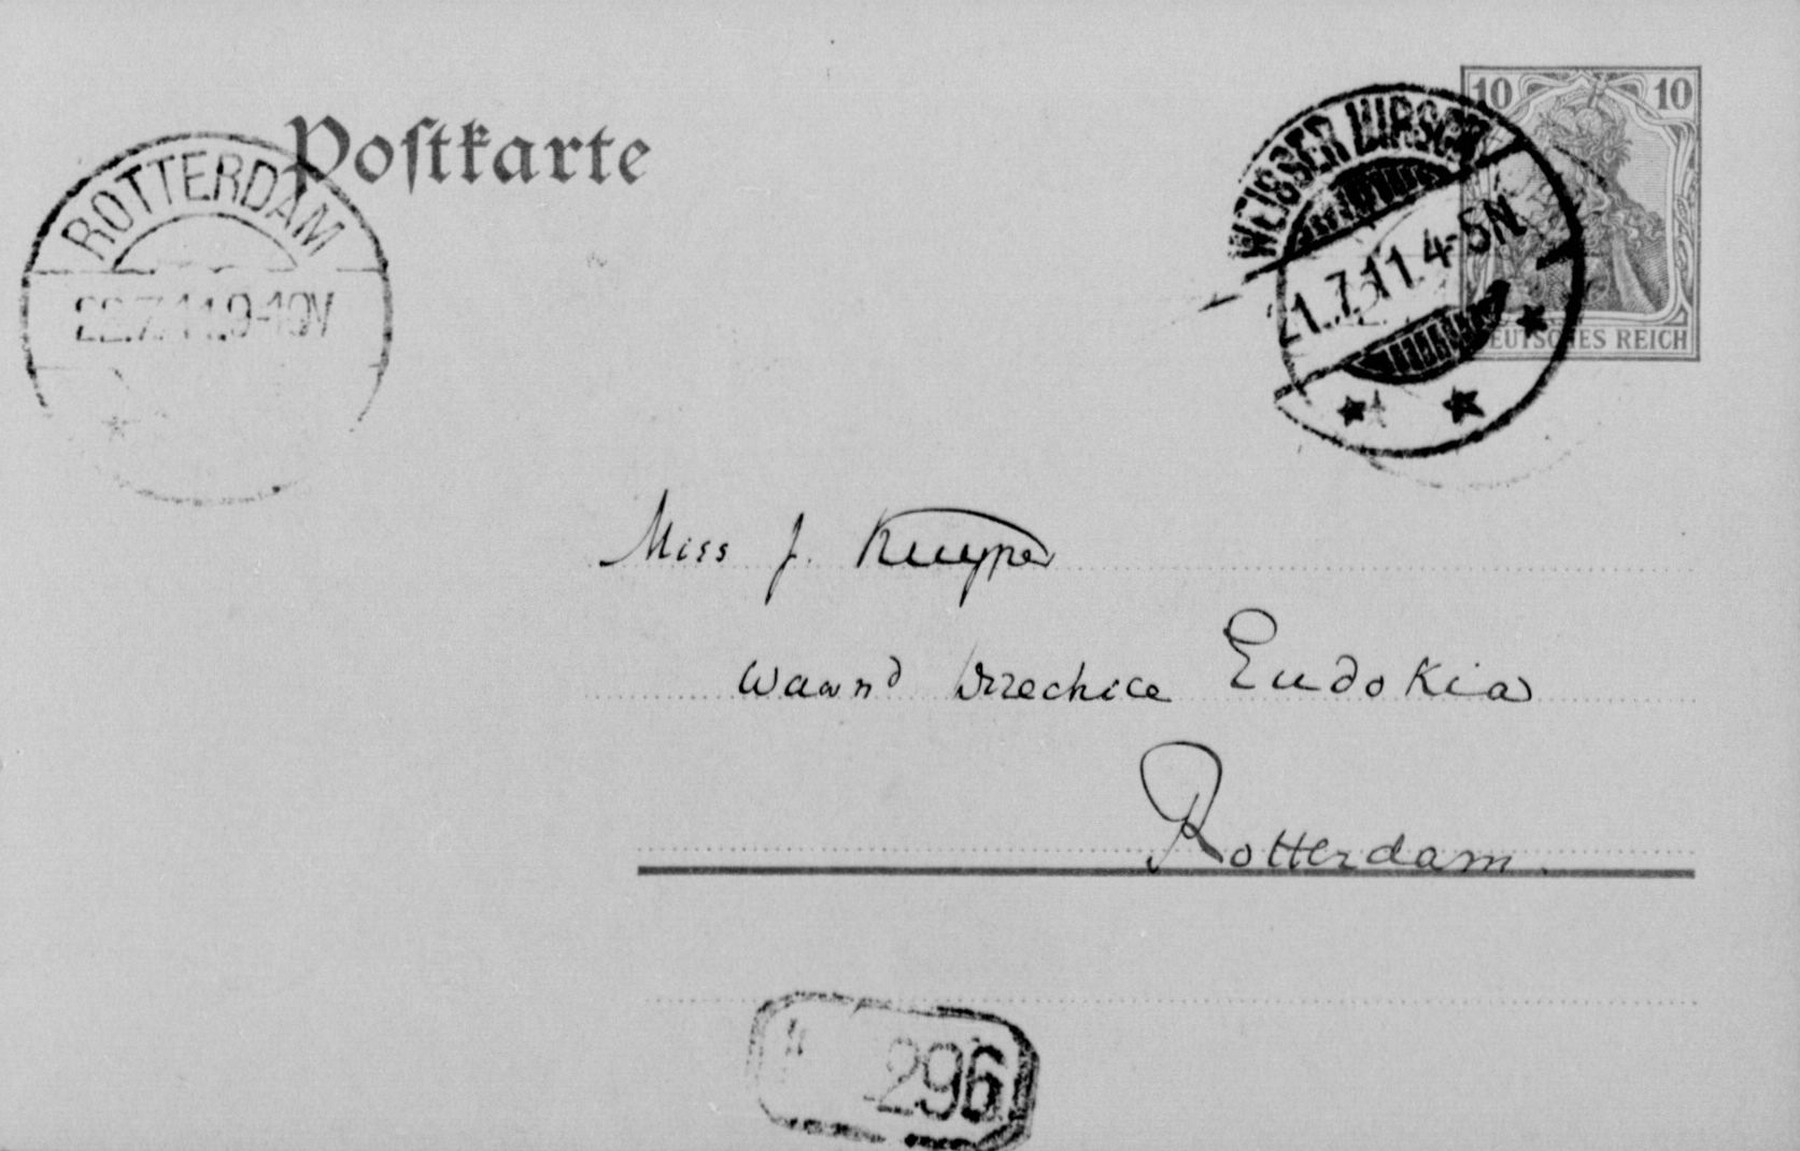 Postkarte
10 10
DEUTSCHES REICH
WEISSER HIRSCH
21.7.11.4-5N
ROTTERDAM
22.7.11.9-10V
Miss J. Kuyper
Waarnd Directrice Eudokia
Rotterdam.
296